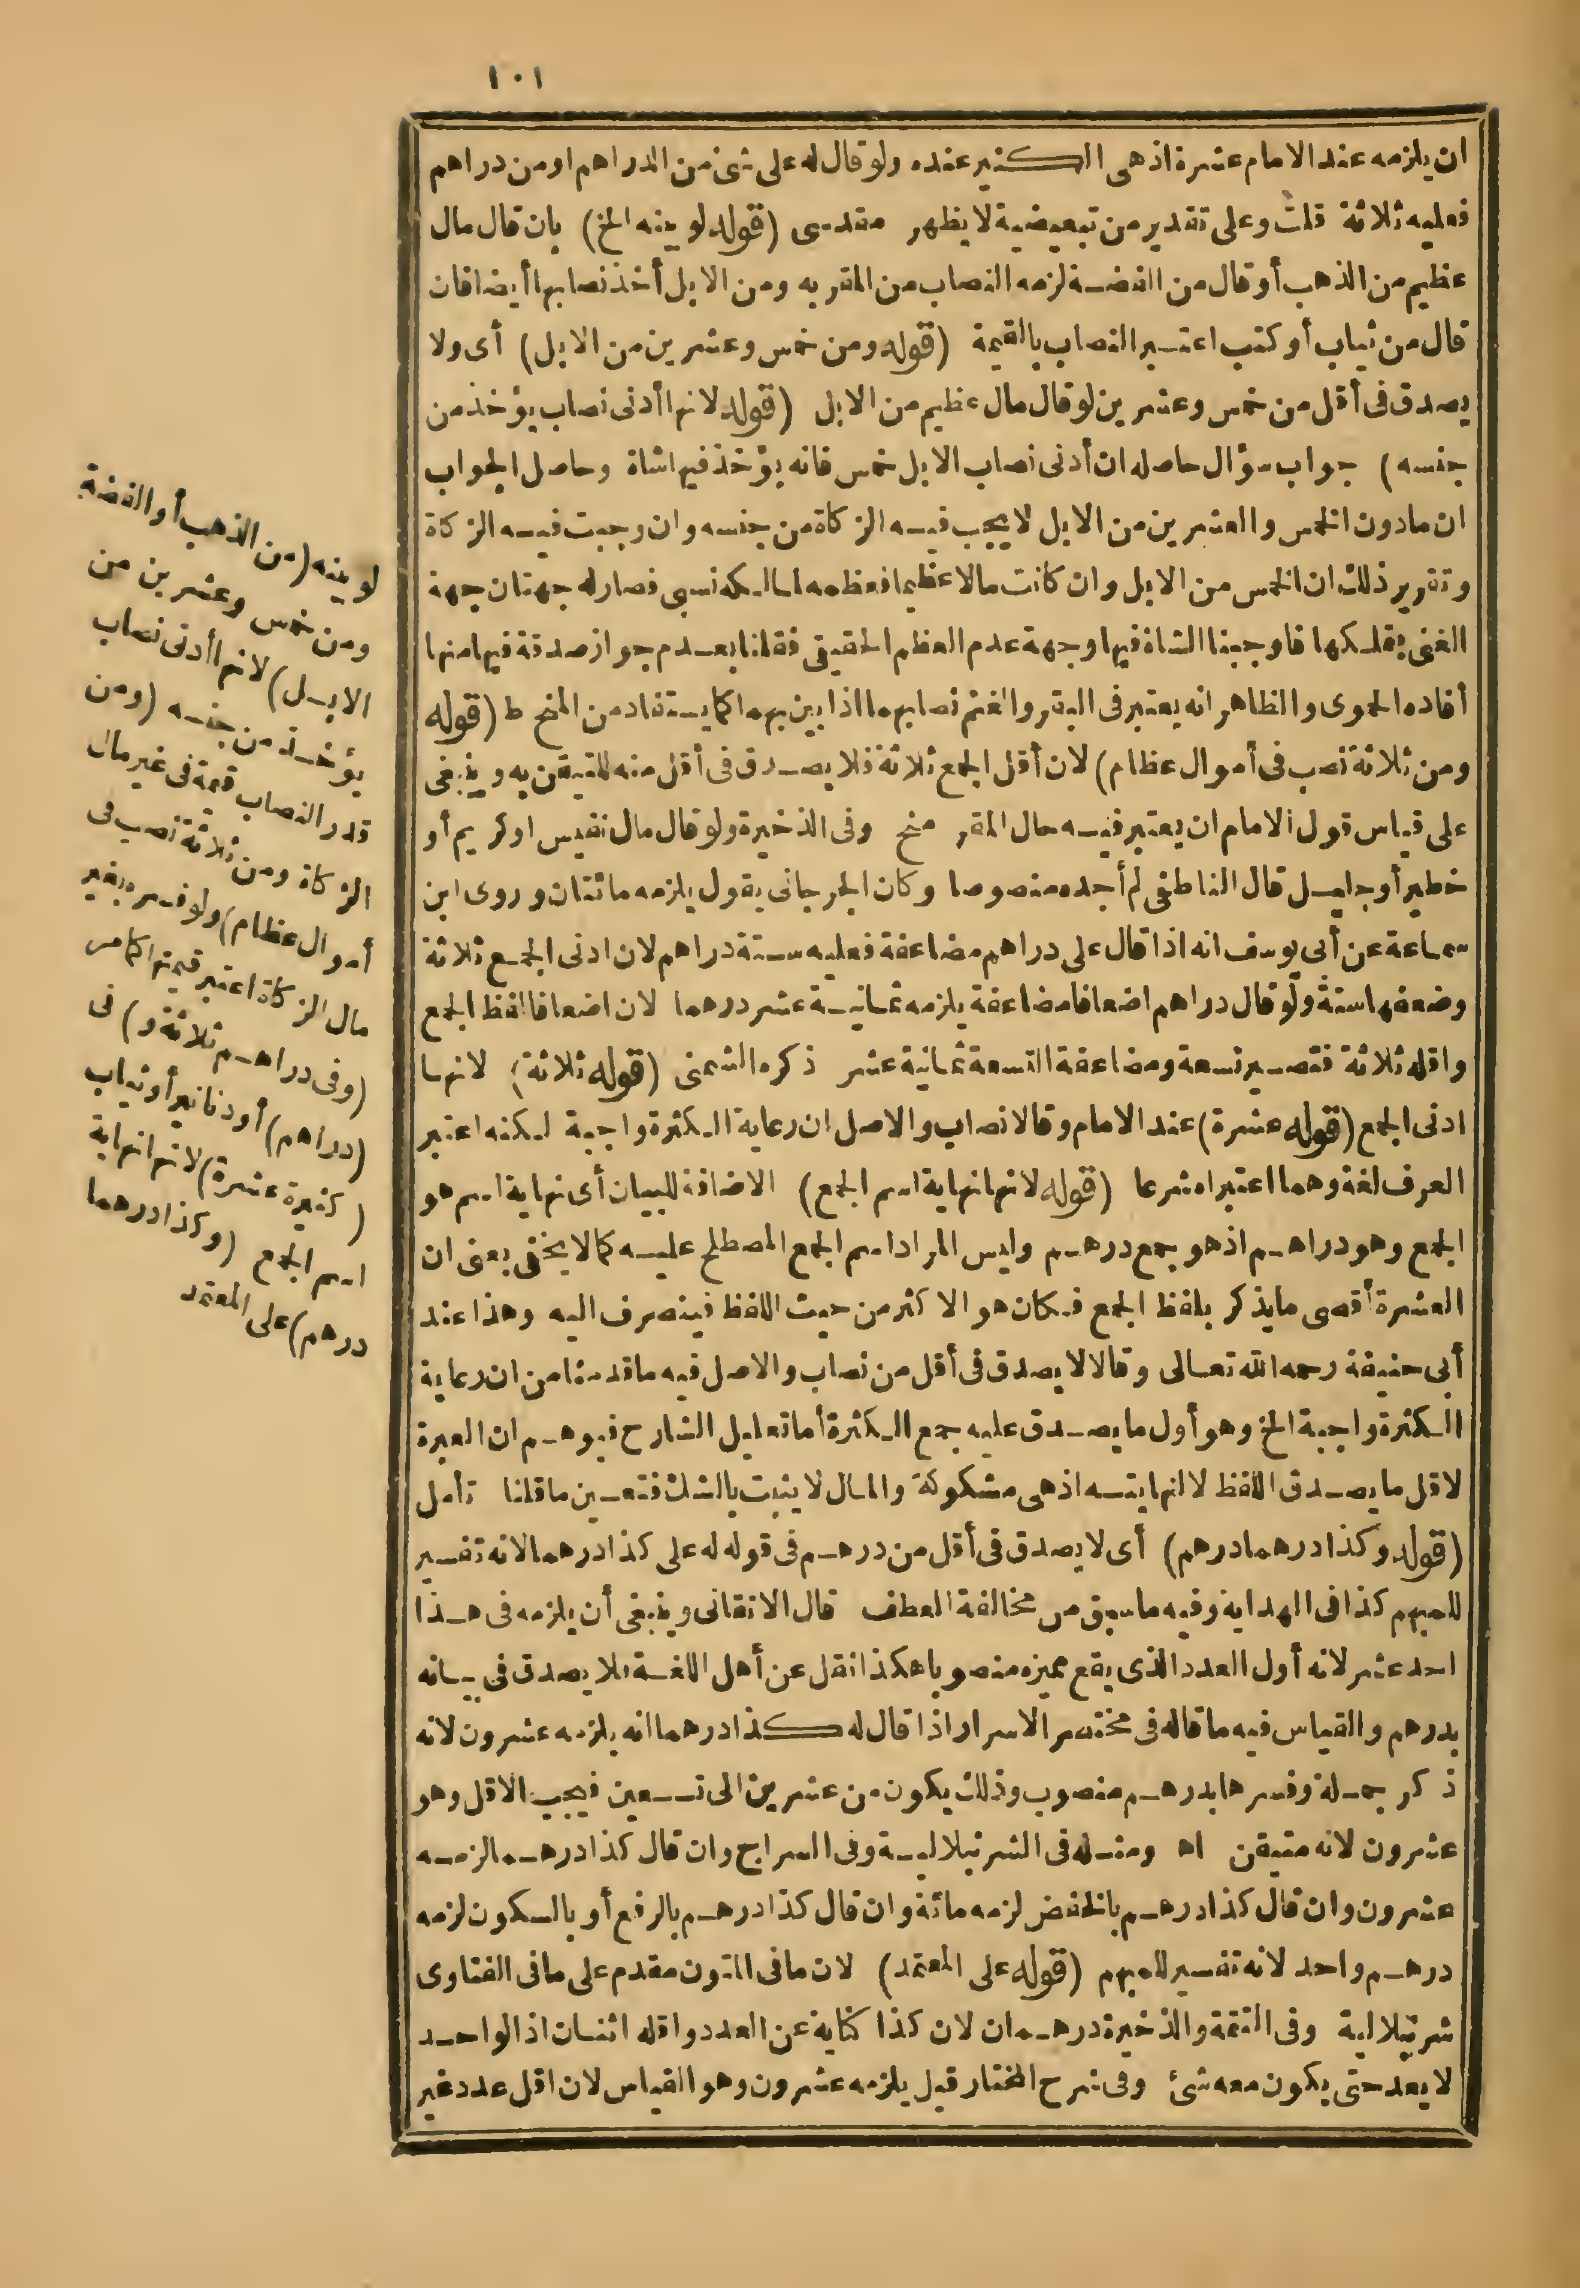 ١٠١
ان يلزمه عند الامام عشرة اذهى الكثير عنده ولو قال له على شئ من الدراهم او من دراهم
فعليه ثلاثة قلت وعلى تقدير من تبعيضية لا يظهر مقدسى (قوله لو بينه الخ) بان قال مال
عظيم من الذهب أو قال من الفضة لزمه النصاب من المقر به ومن الابل أخذ نصابها أيضا فان
قال من ثياب أو كتب اعتبر النصاب بالقيمة (قوله ومن خمس وعشرين من الابل) أى ولا
يصدق فى أقل من خمس وعشرين لو قال مال عظيم من الابل (قوله لانها أدنى نصاب يؤخذ من
جنسه) جواب سؤال حاصله ان أدنى نصاب الابل خمس فانه يؤخذ فيها شاة وحاصل الجواب
ان مادون الخمس والعشرين من الابل لا يجب فيه الزكاة من جنسه وان وجبت فيه الزكاة
وتقرير ذلك ان الخمس من الابل وان كانت مالا عظيما فعظمه لمالكه نسبى فصار له جهتان جهة
الغنى بملكها فاوجبنا الشاة فيها وجهة عدم العظم الحقيقى فقلنا بعدم جواز صدقة فيها منها
أفاده الحموى والظاهر انه يعتبر فى البقر والغنم نصابهما اذا بين بهما كما يستفاد من المنح ط (قوله
ومن ثلاثة نصب فى أموال عظام) لان أقل الجمع ثلاثة فلا يصدق فى أقل منه للتيقن به وينبغى
على قياس قول الامام ان يعتبر فيه حال المقر منح وفى الذخيرة ولو قال مال نفيس او كريم أو
خطير أو جليل قال الناطفى لم أجده منصوصا وكان الجرجانى يقول يلزمه مائتان وروى ابن
سماعة عن أبى يوسف انه اذا قال على دراهم مضاعفة فعليه ستة دراهم لان ادنى الجمع ثلاثة
وضعفها ستة ولو قال دراهم اضعافا مضاعفة يلزمه ثمانية عشر درهما لان اضعافا لفظ الجمع
واقله ثلاثة فتصير تسعة ومضاعفة التسعة ثمانية عشر ذكره الشمنى (قوله ثلاثة) لانها
ادنى الجمع (قوله عشرة) عند الامام وقالا نصاب والاصل ان رعاية الكثرة واجبة لكنه اعتبر
العرف لغة وهما اعتبراه شرعا (قوله لانها نهاية اسم الجمع) الاضافة للبيان أى نهاية اسم هو
الجمع وهو دراهم اذهو جمع درهم وليس المراد اسم الجمع المصطلح عليه كما لا يخفى يعنى ان
العشرة أقصى ما يذكر بلفظ الجمع فكان هو الاكثر من حيث اللفظ فينصرف اليه وهذا عند
أبى حنيفة رحمه الله تعالى وقالا لا يصدق فى أقل من نصاب والاصل فيه ما قدمنا من ان رعاية
الكثرة واجبة الخ وهو أول ما يصدق عليه جمع الكثرة أما تعليل الشارح فيوهم ان العبرة
لاقل ما يصدق اللفظ لا لنهايته اذهى مشكوكة والمال لا يثبت بالشك فتعين ما قلنا تأمل
(قوله وكذا درهما درهم) أى لا يصدق فى أقل من درهم فى قوله له على كذا درهما لانه تفسير
للمبهم كذا فى الهداية وفيه ما سبق من مخالفة العطف قال الاتقانى وينبغى أن يلزمه فى هذا
احد عشر لانه أول العدد الذى يقع مميزه منصوبا هكذا نقل عن أهل اللغة فلا يصدق فى بيانه
بدرهم والقياس فيه ما قاله فى مختصر الاسرار اذا قال له كذا درهما انه يلزمه عشرون لانه
ذكر جملة وفسرها بدرهم منصوب وذلك يكون من عشرين الى تسعين فيجب الاقل وهو
عشرون لانه متيقن اه ومثله فى الشرنبلالية وفى السراج وان قال كذا درهما لزمه
عشرون وان قال كذا درهم بالخفض لزمه مائة وان قال كذا درهم بالرفع أو بالسكون لزمه
درهم واحد لانه تفسير للمبهم (قوله على المعتمد) لان ما فى المتون مقدم على ما فى الفتاوى
شرنبلالية وفى التتمة والذخيرة درهمان لان كذا كناية عن العدد واقله اثنان اذ الواحد
لا يعد حتى يكون معه شئ وفى شرح المختار قيل يلزمه عشرون وهو القياس لان اقل عدد غير
لو بينه (من الذهب أو الفضة
ومن خمس وعشرين من
الابل) لانها أدنى نصاب
يؤخذ من جنسه (ومن
قدر النصاب قيمة فى غير مال
الزكاة ومن ثلاثة نصب فى
أموال عظام) ولو فسره بغير
مال الزكاة اعتبر قيمتها كما مر
(وفى دراهم ثلاثة و) فى
(دراهم) أو دنانير أو ثياب
(كثيرة عشرة) لانها نهاية
اسم الجمع (وكذا درهما
درهم) على المعتمد